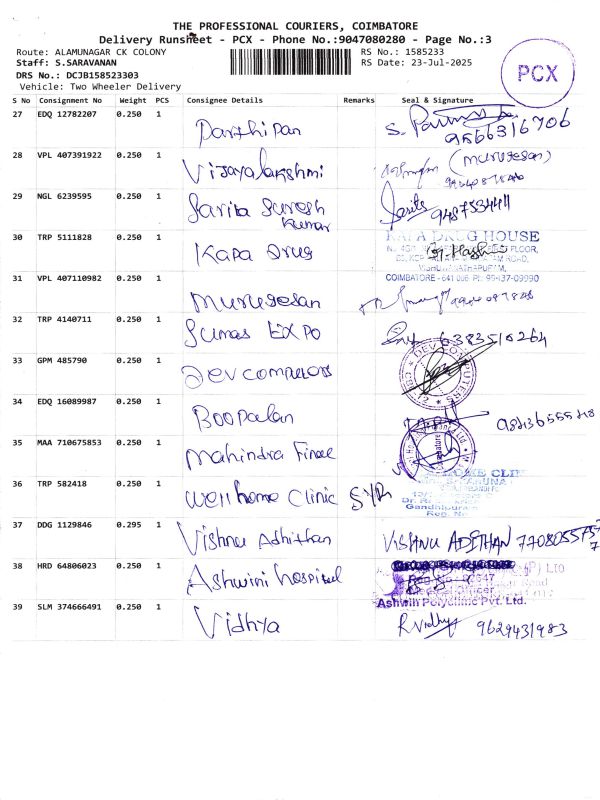 THE PROFESSIONAL COURIERS, COIMBATORE
Delivery Runsheet - PCX - Phone No.:9047080280 - Page No.:3
Route: ALAMUNAGAR CK COLONY RS No.: 1585233
Staff: S.SARAVANAN RS Date: 23-Jul-2025
DRS No.: DCJB158523303
Vehicle: Two Wheeler Delivery
PCX
S No Consignment No Weight PCS Consignee Details Remarks Seal & Signature
27 EDQ 12782207 0.250 1 Parthipan 9566316706
28 VPL 407391922 0.250 1 Vijayalakshmi (murugesan)
29 NGL 6239595 0.250 1 Sarita Suresh Kumar
30 TRP 5111828 0.250 1 Kapa Drug KAPA DRUG HOUSE
COIMBATORE - 641 006
31 VPL 407110982 0.250 1 Murugesan
32 TRP 4140711 0.250 1 Sumas Expo 6383510264
33 GPM 485790 0.250 1 Dev computers
34 EDQ 16089987 0.250 1 Boopalan
35 MAA 710675853 0.250 1 Mahindra Finace
36 TRP 582418 0.250 1 Well home clinic
37 DDG 1129846 0.295 1 Vishnu Adhithan VISHNU ADITHAN
38 HRD 64806023 0.250 1 Ashwini hospital
Ashwin Polyclinic Pvt. Ltd.
39 SLM 374666491 0.250 1 Vidhya R.Vidhya 9629431983